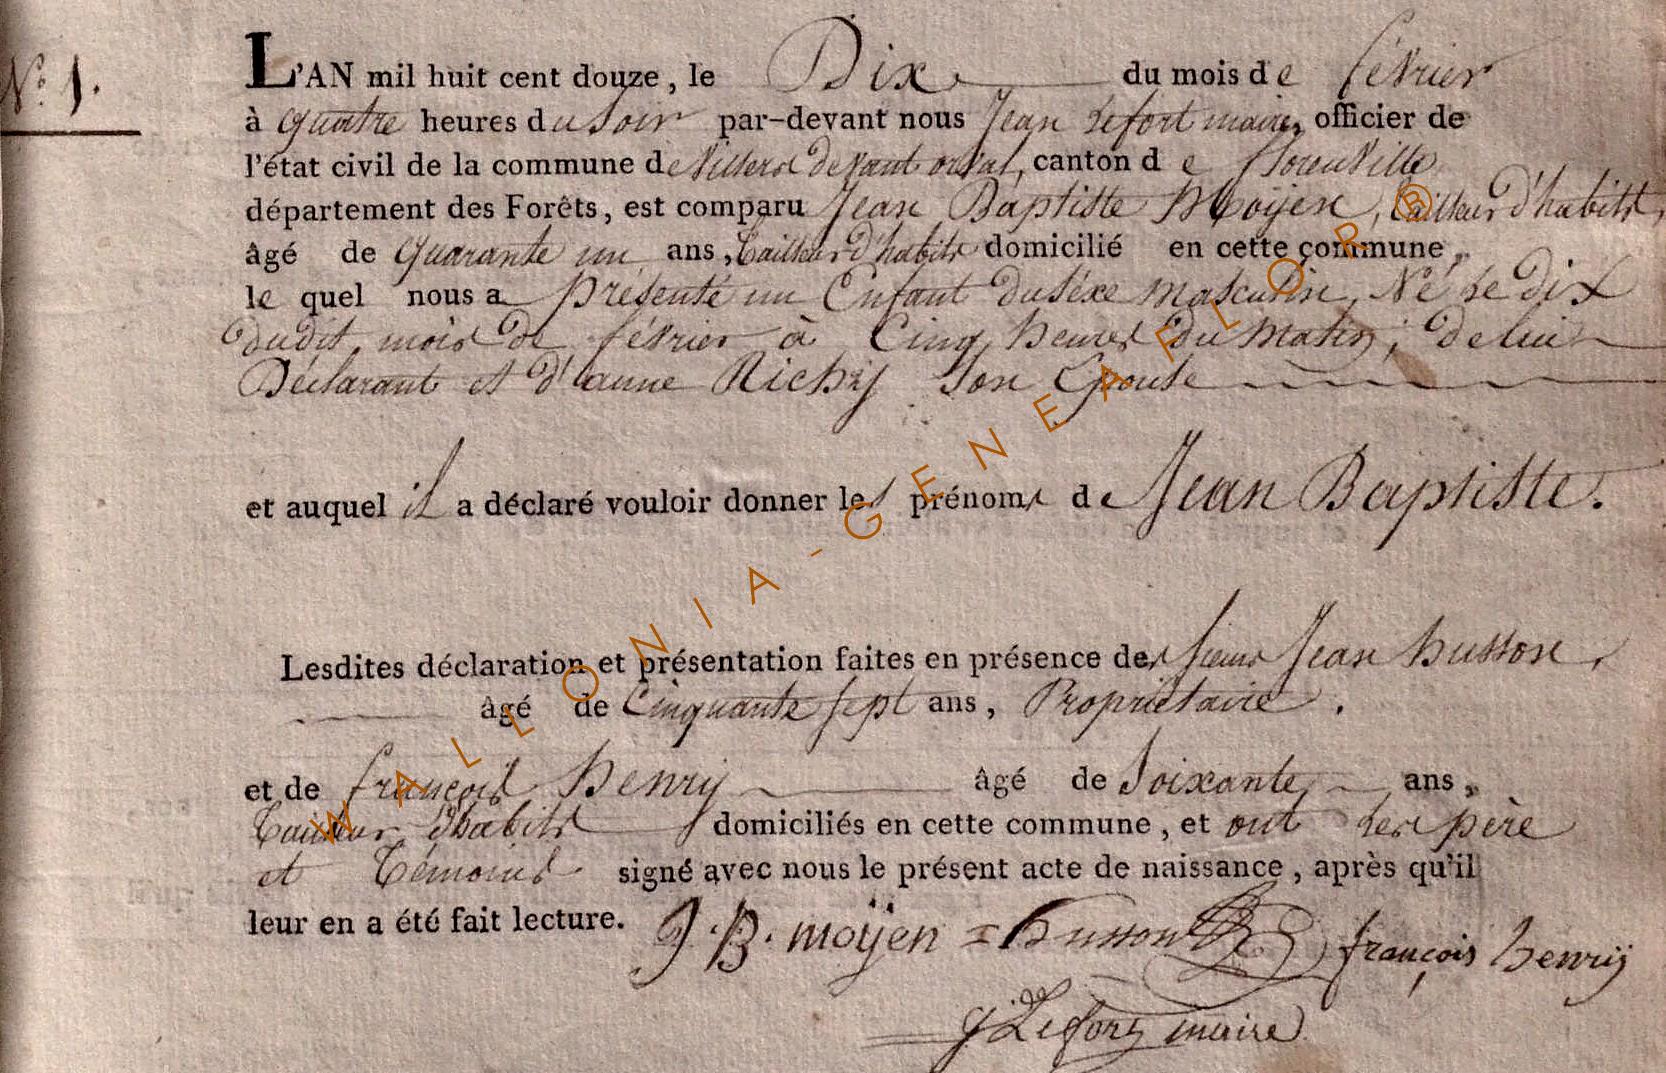 N.º 1.
L'AN mil huit cent douze, le Dix du mois de février
à quatre heures du Soir par-devant nous Jean Lefort maire, officier de
l'état civil de la commune de Villers devant orval, canton de florenville
département des Forêts, est comparu Jean Baptiste Moÿen, tailleur d'habits,
âgé de quarante un ans, tailleur d'habits domicilié en cette commune,
le quel nous a présenté un Enfant du séxe masculin, Né Le dix
dudit mois de février à Cinq heures du matin, de lui
Déclarant et d'anne Richy Son Epouse
et auquel il a déclaré vouloir donner les prénoms de Jean Baptiste.
Lesdites déclaration et présentation faites en présence des sieurs Jean husson,
âgé de Cinquante sept ans, Propriétaire.
et de françois henry âgé de Soixante ans,
tailleur d'habits domiciliés en cette commune, et ont Les père
et témoins signé avec nous le présent acte de naissance, après qu'il
leur en a été fait lecture. J. B. moÿen = husson françois henrÿ
J Lefort maire
WALLONIA-GENEAFLOR®